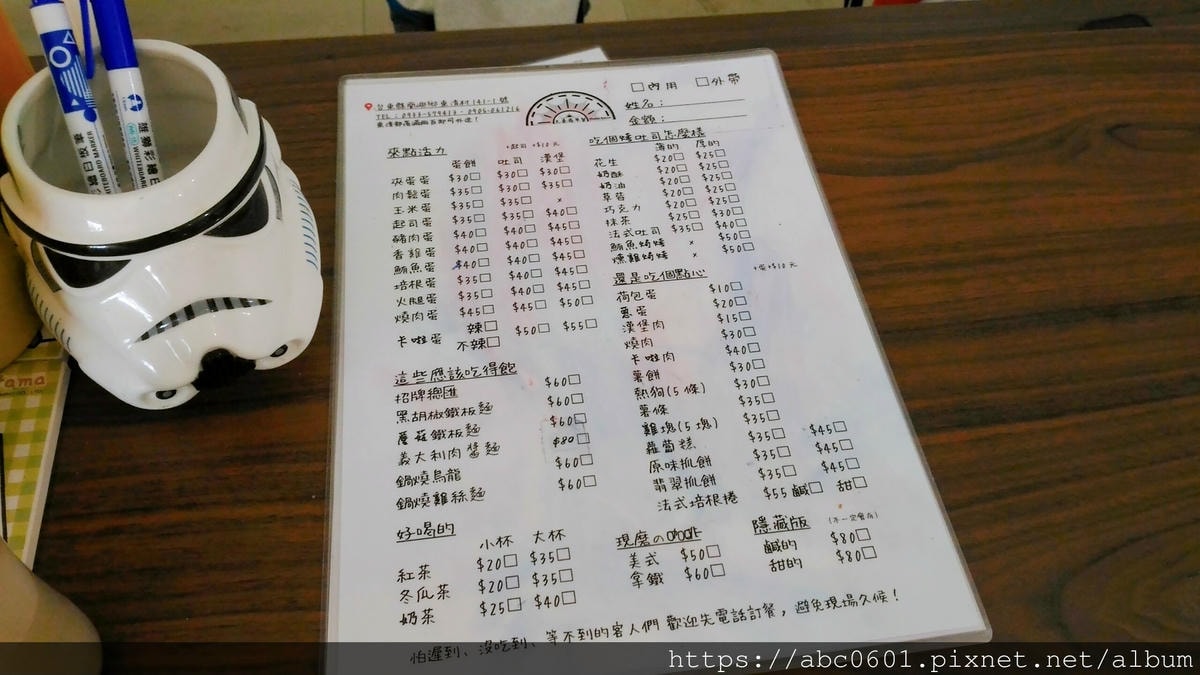 台東縣蘭嶼鄉東清村141-1號
□內用 □外帶
姓名：
金額：
來點活力
+起司 +$10元
蛋餅 吐司 漢堡
夾蛋蛋 $30□ $30□ $30□
肉鬆蛋 $35□ $30□ $35□
玉米蛋 $35□ $35□ ×
起司蛋 $35□ $35□ $40□
豬肉蛋 $40□ $40□ $45□
香雞蛋 $40□ $40□ $45□
鮪魚蛋 $40□ $40□ $45□
培根蛋 $35□ $40□ $45□
火腿蛋 $35□ $40□ $45□
燒肉蛋 $45□ $45□ $50□
卡啦蛋 辣□ 不辣□ $50□ $55□
這些應該吃得飽
招牌總匯 $60□
黑胡椒鐵板麵 $60□
蘑菇鐵板麵 $60□
義大利肉醬麵 $80□
鍋燒烏龍 $60□
鍋燒雞絲麵 $60□
好喝的
小杯 大杯
紅茶 $20□ $35□
冬瓜茶 $20□ $35□
奶茶 $25□ $40□
吃個烤吐司怎麼樣
薄的 厚的
花生 $20□ $25□
奶酥 $20□ $25□
奶油 $20□ $25□
草莓 $20□ $25□
巧克力 $20□ $25□
抹茶 $25□ $30□
法式吐司 $35□ $40□
鮪魚烤烤 × $50□
燻雞烤烤 × $50□
還是吃個點心
荷包蛋 $10□
蔥蛋 $20□
漢堡肉 $15□
燒肉 $30□
卡啦肉 $40□
薯餅 $30□
熱狗(5條) $30□
薯條 $35□
雞塊(5塊) $35□
蘿蔔糕 $35□ $45□
原味抓餅 $35□ $45□
翡翠抓餅 $35□ $45□
法式培根捲 $55 鹹□ 甜□
現磨の咖啡
美式 $50□
拿鐵 $60□
隱藏版
(不一定會有)
鹹的 $80□
甜的 $80□
怕遲到、沒吃到、等不到的客人們 歡迎先電話訂餐，避免現場久候！
雄獅彩繪白板筆
WHITEBOARD MARKER
https://abc0601.pixnet.net/album